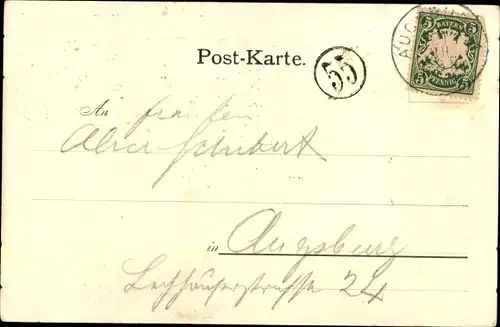 5 BAYERN 5
5 PFENNIG 5
AUG
Post-Karte.
55
An Fräulein
Alice Schubert
in Augsburg
Lechhauserstrasse 24